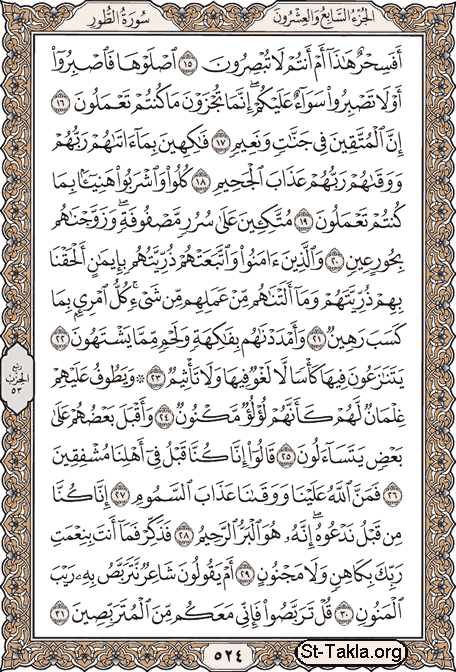 الجزء السابع والعشرون
سورة الطور
أَفَسِحْرٌ هَٰذَآ أَمْ أَنتُمْ لَا تُبْصِرُونَ ١٥ ٱصْلَوْهَا فَٱصْبِرُوٓا۟
أَوْ لَا تَصْبِرُوا۟ سَوَآءٌ عَلَيْكُمْ ۖ إِنَّمَا تُجْزَوْنَ مَا كُنتُمْ تَعْمَلُونَ ١٦
إِنَّ ٱلْمُتَّقِينَ فِى جَنَّٰتٍ وَنَعِيمٍ ١٧ فَٰكِهِينَ بِمَآ ءَاتَىٰهُمْ رَبُّهُمْ
وَوَقَىٰهُمْ رَبُّهُمْ عَذَابَ ٱلْجَحِيمِ ١٨ كُلُوا۟ وَٱشْرَبُوا۟ هَنِيٓـًٔۢا بِمَا
كُنتُمْ تَعْمَلُونَ ١٩ مُتَّكِـِٔينَ عَلَىٰ سُرُرٍ مَّصْفُوفَةٍ ۖ وَزَوَّجْنَٰهُم
بِحُورٍ عِينٍ ٢٠ وَٱلَّذِينَ ءَامَنُوا۟ وَٱتَّبَعَتْهُمْ ذُرِّيَّتُهُم بِإِيمَٰنٍ أَلْحَقْنَا
بِهِمْ ذُرِّيَّتَهُمْ وَمَآ أَلَتْنَٰهُم مِّنْ عَمَلِهِم مِّن شَىْءٍ ۚ كُلُّ ٱمْرِئٍۭ بِمَا
كَسَبَ رَهِينٌ ٢١ وَأَمْدَدْنَٰهُم بِفَٰكِهَةٍ وَلَحْمٍ مِّمَّا يَشْتَهُونَ ٢٢
يَتَنَٰزَعُونَ فِيهَا كَأْسًا لَّا لَغْوٌ فِيهَا وَلَا تَأْثِيمٌ ٢٣ ۞ وَيَطُوفُ عَلَيْهِمْ
غِلْمَانٌ لَّهُمْ كَأَنَّهُمْ لُؤْلُؤٌ مَّكْنُونٌ ٢٤ وَأَقْبَلَ بَعْضُهُمْ عَلَىٰ
بَعْضٍ يَتَسَآءَلُونَ ٢٥ قَالُوٓا۟ إِنَّا كُنَّا قَبْلُ فِىٓ أَهْلِنَا مُشْفِقِينَ
٢٦ فَمَنَّ ٱللَّهُ عَلَيْنَا وَوَقَىٰنَا عَذَابَ ٱلسَّمُومِ ٢٧ إِنَّا كُنَّا
مِن قَبْلُ نَدْعُوهُ ۖ إِنَّهُۥ هُوَ ٱلْبَرُّ ٱلرَّحِيمُ ٢٨ فَذَكِّرْ فَمَآ أَنتَ بِنِعْمَتِ
رَبِّكَ بِكَاهِنٍ وَلَا مَجْنُونٍ ٢٩ أَمْ يَقُولُونَ شَاعِرٌ نَّتَرَبَّصُ بِهِۦ رَيْبَ
ٱلْمَنُونِ ٣٠ قُلْ تَرَبَّصُوا۟ فَإِنِّى مَعَكُم مِّنَ ٱلْمُتَرَبِّصِينَ ٣١
ربع
الحزب
٥٣
٥٢٤
St-Takla.org